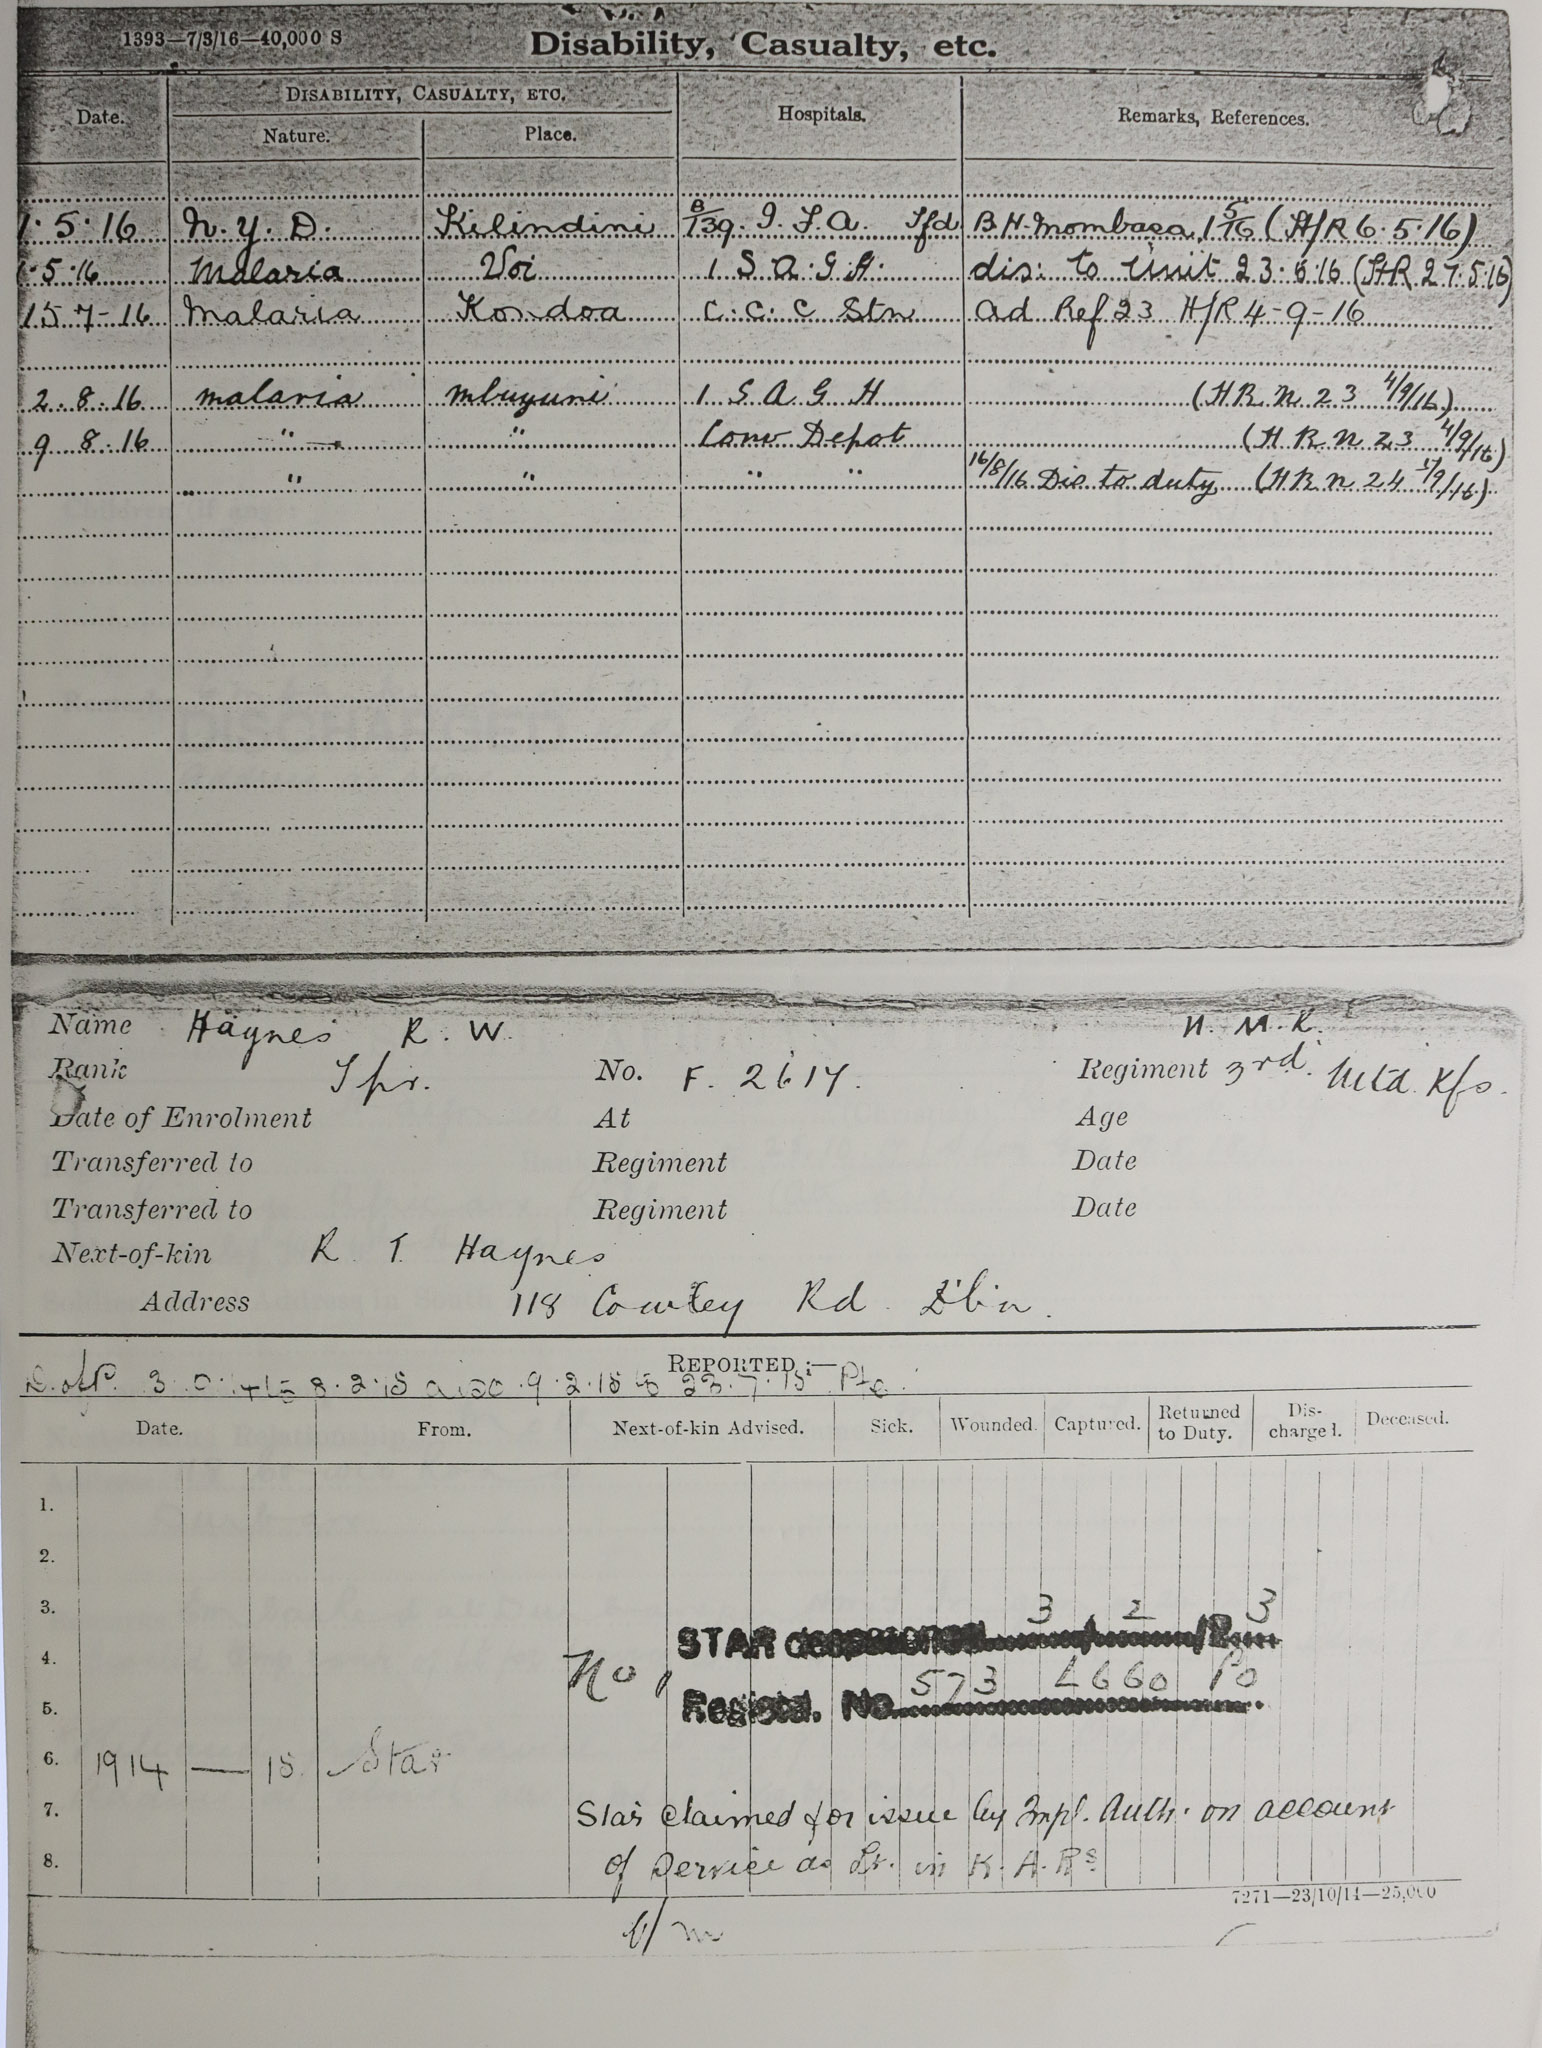 1393—7/3/16—40,000 S
Disability, Casualty, etc.
Date. Disability, Casualty, etc. Hospitals. Remarks, References.
Nature. Place.
1.5.16 N.Y.D. Kilindini B/139. I.F.A. Tfd B.H. Mombasa, 1 5/16 (H/R 6.5.16)
.5.16 Malaria Voi 1 S.A.G.H. dis: to Unit 23.5.16 (HR 27.5.16)
15-7-16 Malaria Kondoa C.C.C Stn ad Ref 23 H/R 4-9-16
2.8.16 malaria mbuyuni 1 S A G H (H R N 23 4/9/16)
9 8.16 " " Conv Depot (H R N 23 4/9/16)
" " " " 16/8/16 Dis to duty (H R N 24 /9/16)
Name Haynes R. W. N. M. R.
Rank Tpr. No. F. 2617. Regiment 3rd. Mtd. Rfs.
Date of Enrolment At Age
Transferred to Regiment Date
Transferred to Regiment Date
Next-of-kin R T Haynes
Address 118 Cowley Rd D'bn.
Reported:—
D. of P. 8.2.15 also 9.2.15 to 23.7.15 Pte.
Date. From. Next-of-kin Advised. Sick. Wounded. Captured. Returned to Duty. Discharged. Deceased.
1.
2.
3. 3 2 3
STAR / /P
4. No,
573 L660 Po
5. Registd. No.
6. 1914 — 15 Star
7. Star claimed for issue by Impl. Auth. on account
8. of service as Lt. in K.A.Rs
7271—23/10/14—25,000